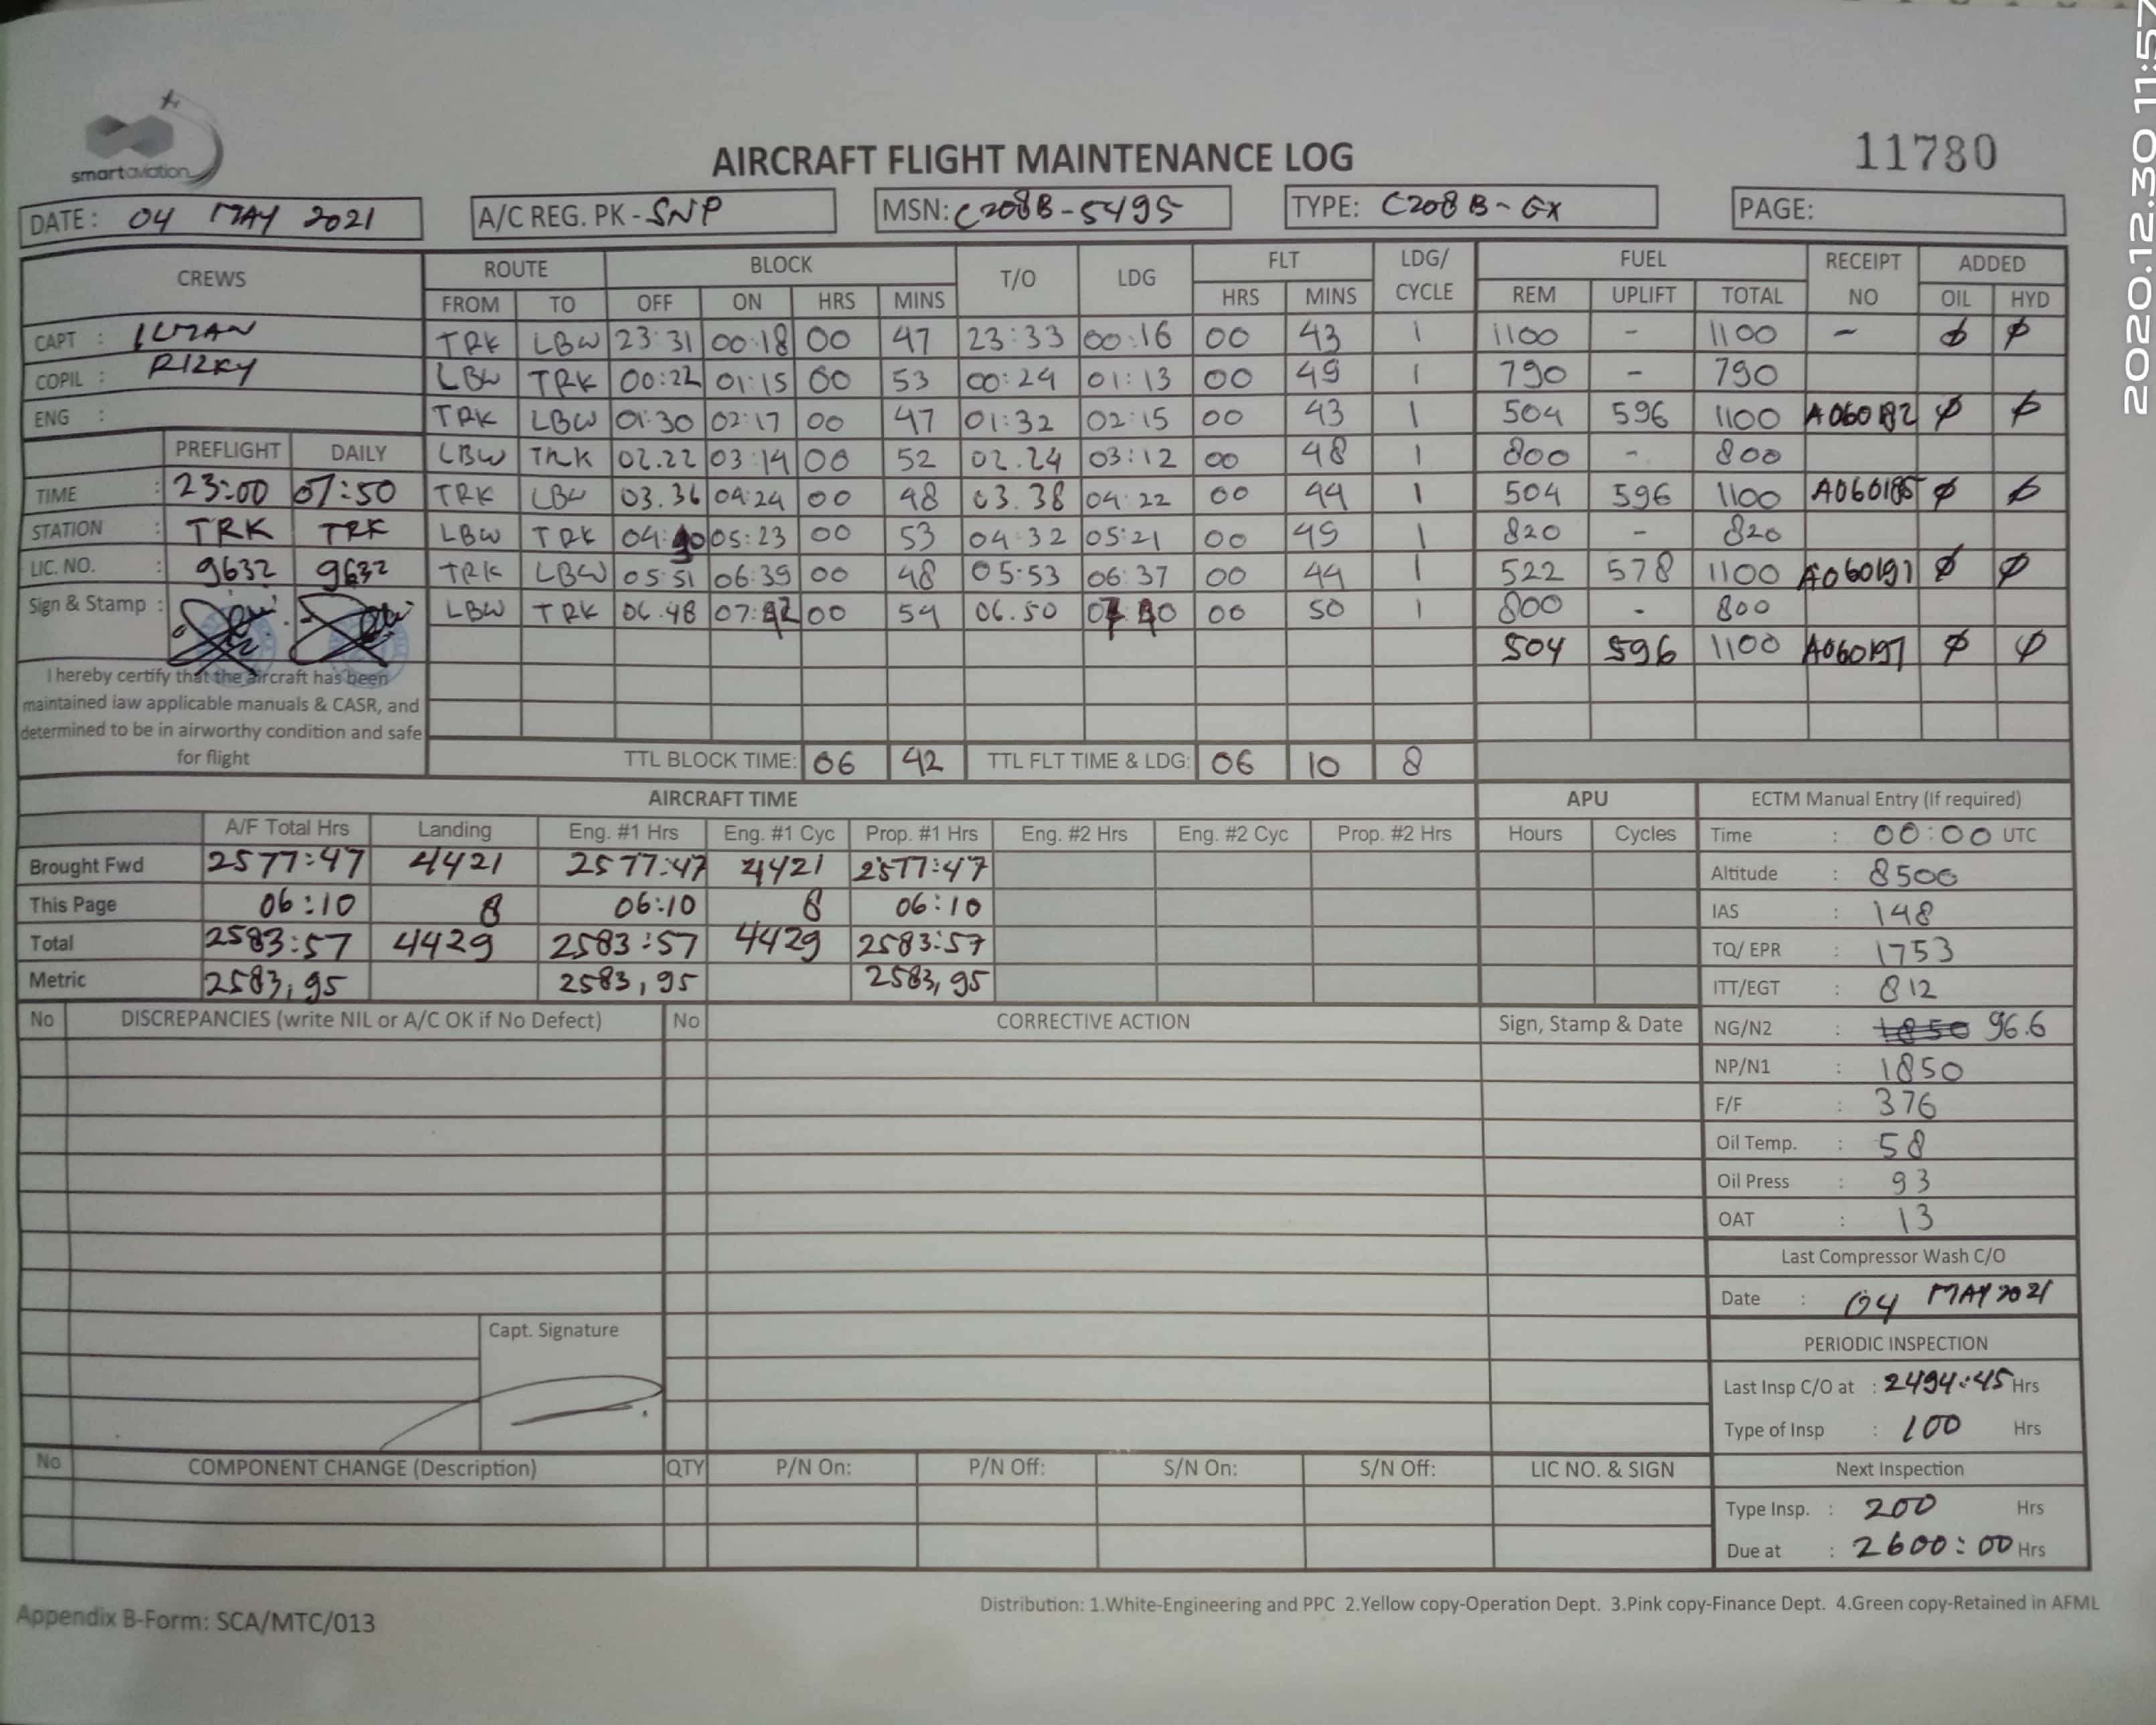 smartaviation
AIRCRAFT FLIGHT MAINTENANCE LOG
11780
2020.12.30 11:57
DATE: 04 MAY 2021 A/C REG. PK - SNP MSN: C208B-5495 TYPE: C208B-GX PAGE:
CREWS ROUTE BLOCK T/O LDG FLT LDG/ CYCLE FUEL RECEIPT NO ADDED
FROM TO OFF ON HRS MINS HRS MINS REM UPLIFT TOTAL OIL HYD
CAPT :
COPIL : RIZKY
ENG :
TRK LBW 23:31 00:18 00 47 23:33 00:16 00 43 1 1100 - 1100 - φ φ
LBW TRK 00:22 01:15 00 53 00:24 01:13 00 49 1 790 - 790
TRK LBW 01:30 02:17 00 47 01:32 02:15 00 43 1 504 596 1100 A060182 φ φ
LBW TRK 02.22 03:14 00 52 02.24 03:12 00 48 1 800 - 800
TRK LBW 03.36 04:24 00 48 03.38 04:22 00 44 1 504 596 1100 A060185 φ φ
LBW TRK 05:23 00 53 04:32 05:21 00 49 1 820 - 820
TRK LBW 05:51 06:39 00 48 05:53 06:37 00 44 1 522 578 1100 A060191 φ φ
LBW TRK 06.48 07:42 00 54 06.50 00 50 1 800 - 800
504 596 1100 A060197 φ φ
PREFLIGHT DAILY
TIME : 23:00 07:50
STATION : TRK TRK
LIC. NO. : 9632 9632
Sign & Stamp :
I hereby certify that the aircraft has been
maintained iaw applicable manuals & CASR, and
determined to be in airworthy condition and safe
for flight
TTL BLOCK TIME: 06 42 TTL FLT TIME & LDG: 06 10 8
AIRCRAFT TIME APU
A/F Total Hrs Landing Eng. #1 Hrs Eng. #1 Cyc Prop. #1 Hrs Eng. #2 Hrs Eng. #2 Cyc Prop. #2 Hrs Hours Cycles
Brought Fwd 2577:47 4421 2577:47 4421 2577:47
This Page 06:10 8 06:10 8 06:10
Total 2583:57 4429 2583:57 4429 2583:57
Metric 2583,95 2583,95 2583,95
ECTM Manual Entry (If required)
Time : 00:00 UTC
Altitude : 8500
IAS : 148
TQ/ EPR : 1753
ITT/EGT : 812
NG/N2 : 1850 96.6
NP/N1 : 1850
F/F : 376
Oil Temp. : 58
Oil Press : 93
OAT : 13
Last Compressor Wash C/O
Date : 04 MAY 2021
PERIODIC INSPECTION
Last Insp C/O at : 2494:45 Hrs
Type of Insp : 100 Hrs
Next Inspection
Type Insp. : 200 Hrs
Due at : 2600:00 Hrs
No DISCREPANCIES (write NIL or A/C OK if No Defect) No CORRECTIVE ACTION Sign, Stamp & Date
Capt. Signature
No COMPONENT CHANGE (Description) QTY P/N On: P/N Off: S/N On: S/N Off: LIC NO. & SIGN
Distribution: 1.White-Engineering and PPC 2.Yellow copy-Operation Dept. 3.Pink copy-Finance Dept. 4.Green copy-Retained in AFML
Appendix B-Form: SCA/MTC/013